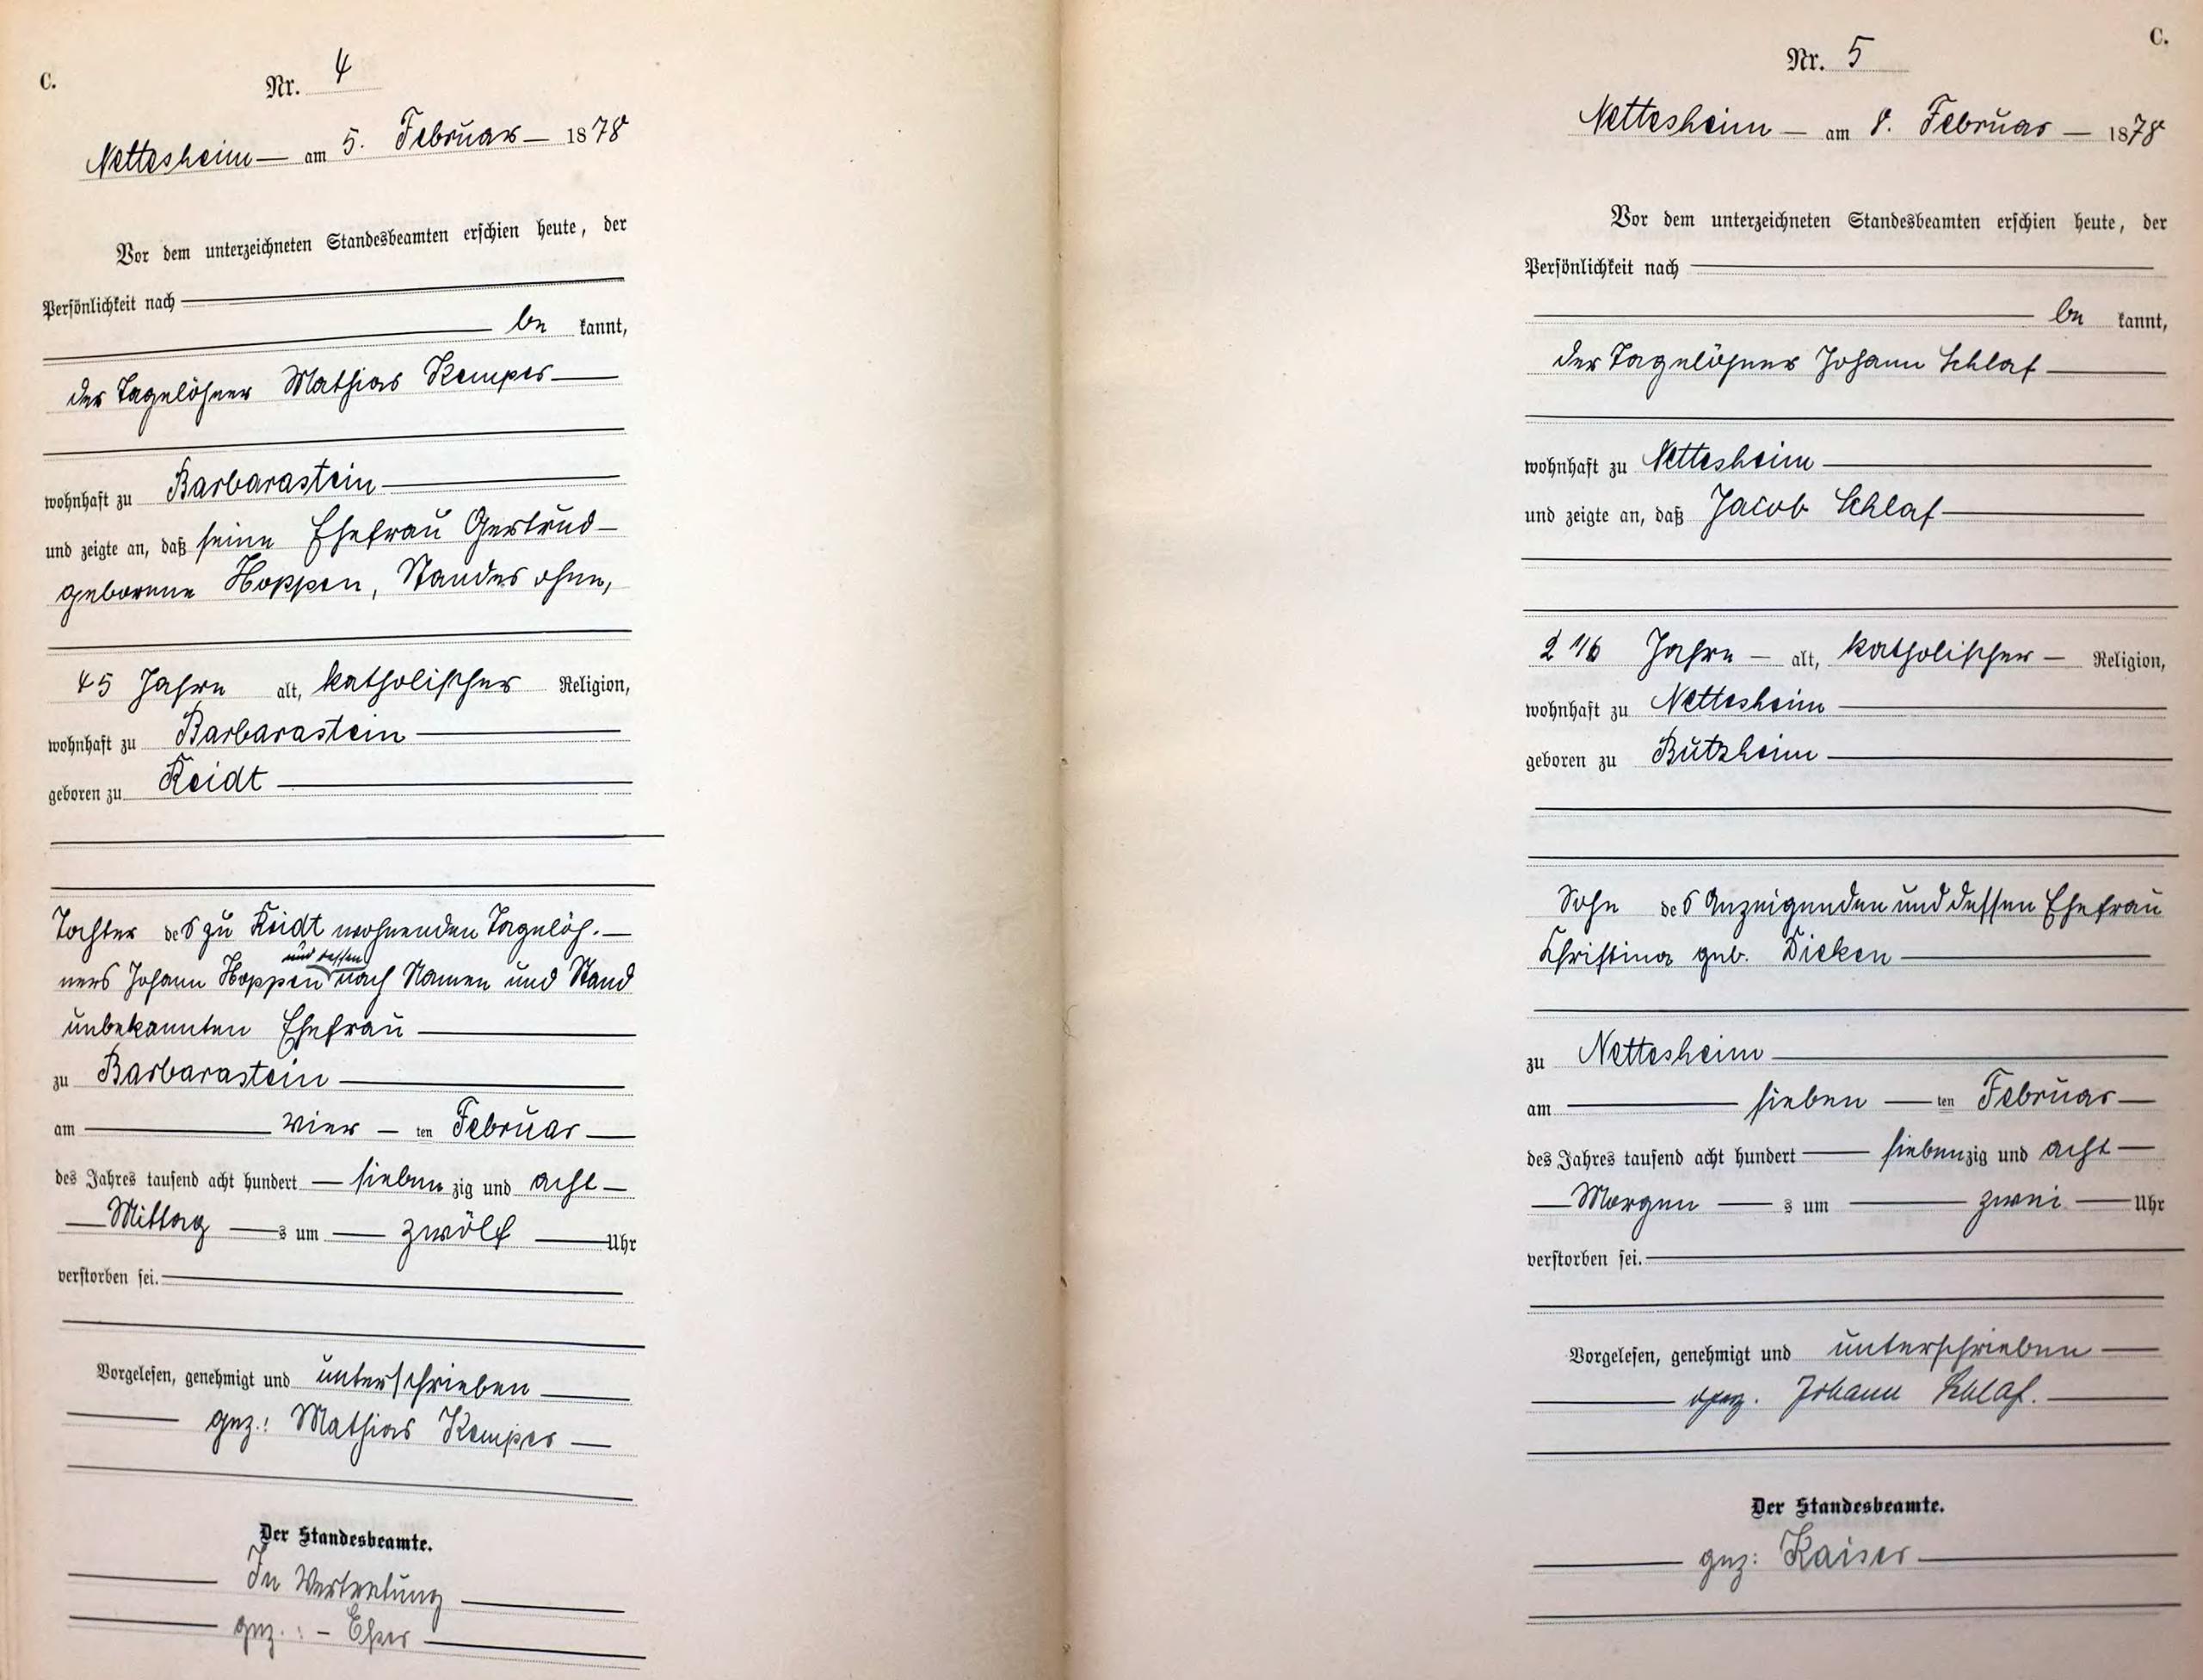 C.
Nr. 4
Nettesheim — am 5. Februar — 1878
Vor dem unterzeichneten Standesbeamten erschien heute, der
Persönlichkeit nach
be kannt,
der Tagelöhner Mathias Kemper
wohnhaft zu Barbarastein
und zeigte an, daß seine Ehefrau Gertrud
geborene Hoppen, Standes ohne,
45 Jahre alt, katholischer Religion,
wohnhaft zu Barbarastein
geboren zu
Tochter des zu wohnenden Tagelöh-
und dessen
ners Johann Hoppen nach Namen und Stand
unbekannten Ehefrau
zu Barbarastein
am vier ten Februar
des Jahres tausend acht hundert sieben zig und acht
Mittag s um zwölf Uhr
verstorben sei.
Vorgelesen, genehmigt und unterschrieben
gez.: Mathias Kemper
Der Standesbeamte.
In Vertretung
gez.: Esser
C.
Nr. 5
Nettesheim — am 8. Februar — 1878
Vor dem unterzeichneten Standesbeamten erschien heute, der
Persönlichkeit nach
be kannt,
der Tagelöhner Johann Schlaf
wohnhaft zu Nettesheim
und zeigte an, daß Jacob Schlaf
Jahre alt, katholischer Religion,
wohnhaft zu Nettesheim
geboren zu Butzheim
Sohn des Anzeigenden und dessen Ehefrau
Christina geb. Dicken
zu Nettesheim
am sieben ten Februar
des Jahres tausend acht hundert siebenzig und acht
Morgen s um zwei Uhr
verstorben sei.
Vorgelesen, genehmigt und unterschrieben
gez. Johann Schlaf.
Der Standesbeamte.
gez: Kaiser